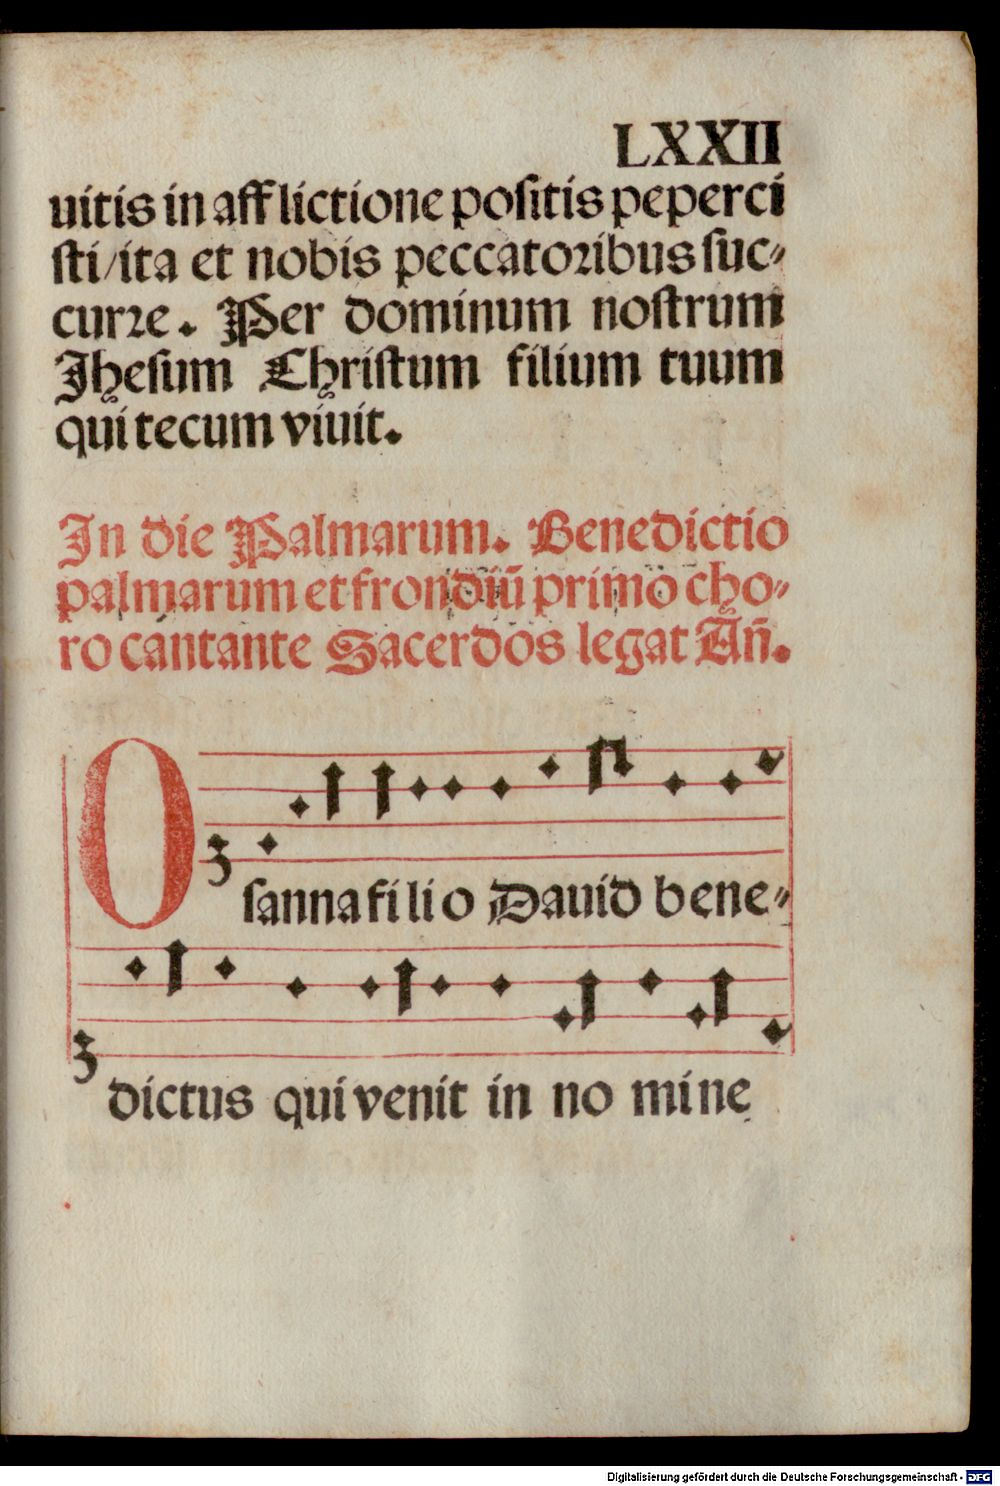 LXXII
uitis in afflictione poſitis peperci
ſti/ita et nobis peccatoꝛibus ſuc⸗
curꝛe. Per dominum noſtrum
Jheſum Chriſtum filium tuum
qui tecum viuit.
In die Palmarum. Benedictio
palmarum et frondiū primo cho⸗
ro cantante Sacerdos legat An̄.
O
ſanna fi li o Dauid bene⸗
dictus qui venit in no mi ne
Digitalisierung gefördert durch die Deutsche Forschungsgemeinschaft - DFG